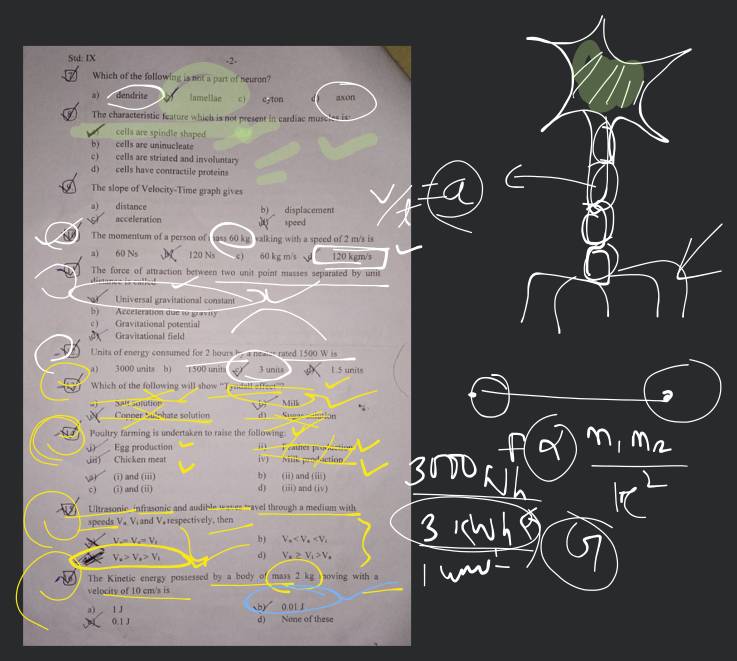 Std: IX
-2-
7 Which of the following is not a part of neuron?
a) dendrite b) lamellae c) cyton d) axon
8 The characteristic feature which is not present in cardiac muscles is:
a) cells are spindle shaped
b) cells are uninucleate
c) cells are striated and involuntary
d) cells have contractile proteins
9 The slope of Velocity-Time graph gives
a) distance b) displacement
c) acceleration d) speed
v/t = a
10 The momentum of a person of mass 60 kg walking with a speed of 2 m/s is
a) 60 Ns b) 120 Ns c) 60 kg m/s d) 120 kgm/s
11 The force of attraction between two unit point masses separated by unit
distance is called
a) Universal gravitational constant
b) Acceleration due to gravity
c) Gravitational potential
d) Gravitational field
12 Units of energy consumed for 2 hours by a heater rated 1500 W is
a) 3000 units b) 1500 units c) 3 units d) 1.5 units
13 Which of the following will show "Tyndall effect"?
a) Salt solution b) Milk
c) Copper Sulphate solution d) Sugar solution
14 Poultry farming is undertaken to raise the following:
i) Egg production ii) Feather production
iii) Chicken meat iv) Milk production
a) (i) and (iii) b) (ii) and (iii)
c) (i) and (ii) d) (iii) and (iv)
15 Ultrasonic, infrasonic and audible waves travel through a medium with
speeds Vu Vi and Va respectively, then
b) Va < Vu < Vi
Vu > Va > Vi d) Vu ≥ Vi > Va
16 The Kinetic energy possessed by a body of mass 2 kg moving with a
velocity of 10 cm/s is
a) 1 J b) 0.01 J
c) 0.1 J d) None of these
F α m1 m2
r2
3000 Wh
3 kWh
G
1 unit